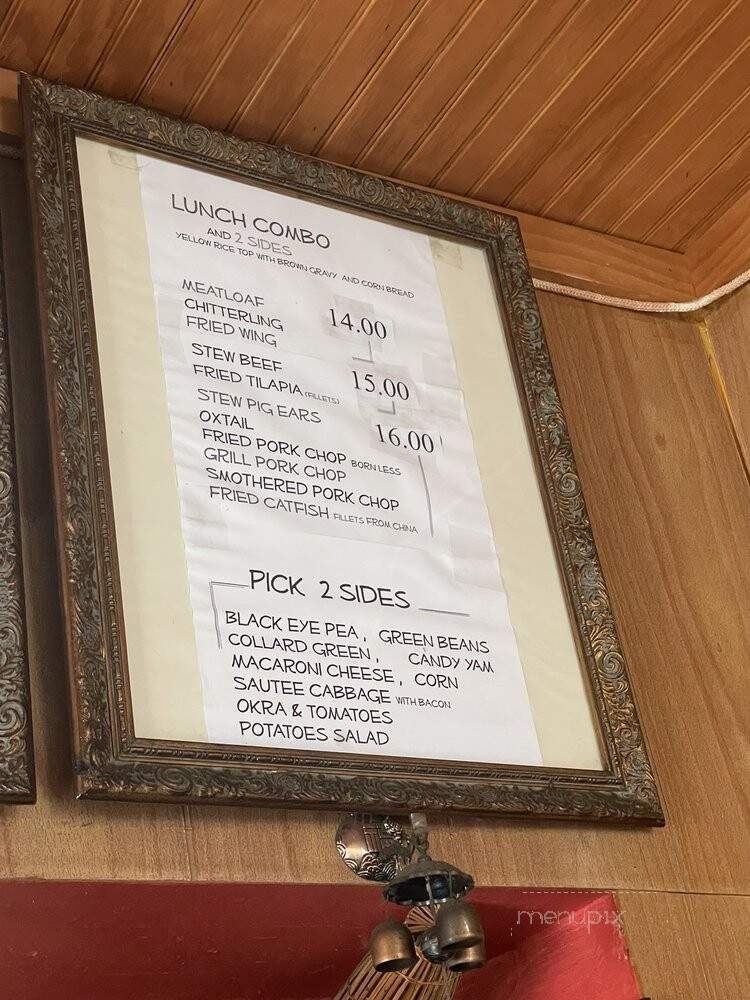 LUNCH COMBO
AND 2 SIDES
YELLOW RICE TOP WITH BROWN GRAVY AND CORN BREAD
MEATLOAF
CHITTERLING 14.00
FRIED WING
STEW BEEF
FRIED TILAPIA (FILLETS) 15.00
STEW PIG EARS
OXTAIL 16.00
FRIED PORK CHOP BORN LESS
GRILL PORK CHOP
SMOTHERED PORK CHOP
FRIED CATFISH FILLETS FROM CHINA
PICK 2 SIDES
BLACK EYE PEA, GREEN BEANS
COLLARD GREEN, CANDY YAM
MACARONI CHEESE, CORN
SAUTEE CABBAGE WITH BACON
OKRA & TOMATOES
POTATOES SALAD
menupix